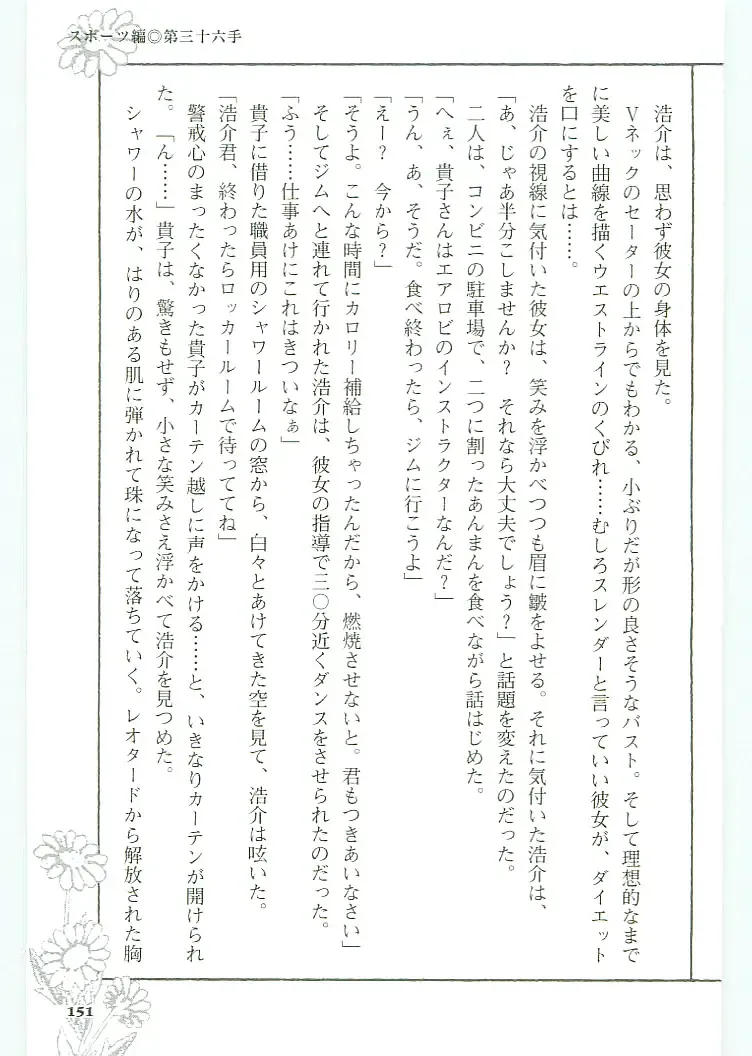 スポーツ編◎第三十六手
浩介は、思わず彼女の身体を見た。
Vネックのセーターの上からでもわかる、小ぶりだが形の良さそうなバスト。そして理想的なまで
に美しい曲線を描くウエストラインのくびれ……むしろスレンダーと言っていい彼女が、ダイエット
を口にするとは……。
浩介の視線に気付いた彼女は、笑みを浮かべつつも眉に皺をよせる。それに気付いた浩介は、
「あ、じゃあ半分こしませんか? それなら大丈夫でしょう?」と話題を変えたのだった。
二人は、コンビニの駐車場で、二つに割ったあんまんを食べながら話はじめた。
「へぇ、貴子さんはエアロビのインストラクターなんだ?」
「うん、あ、そうだ。食べ終わったら、ジムに行こうよ」
「えー? 今から?」
「そうよ。こんな時間にカロリー補給しちゃったんだから、燃焼させないと。君もつきあいなさい」
そしてジムへと連れて行かれた浩介は、彼女の指導で三〇分近くダンスをさせられたのだった。
「ふう……仕事あけにこれはきついなぁ」
貴子に借りた職員用のシャワールームの窓から、白々とあけてきた空を見て、浩介は呟いた。
「浩介君、終わったらロッカールームで待っててね」
警戒心のまったくなかった貴子がカーテン越しに声をかける……と、いきなりカーテンが開けられ
た。「ん……」貴子は、驚きもせず、小さな笑みさえ浮かべて浩介を見つめた。
シャワーの水が、はりのある肌に弾かれて珠になって落ちていく。レオタードから解放された胸
151